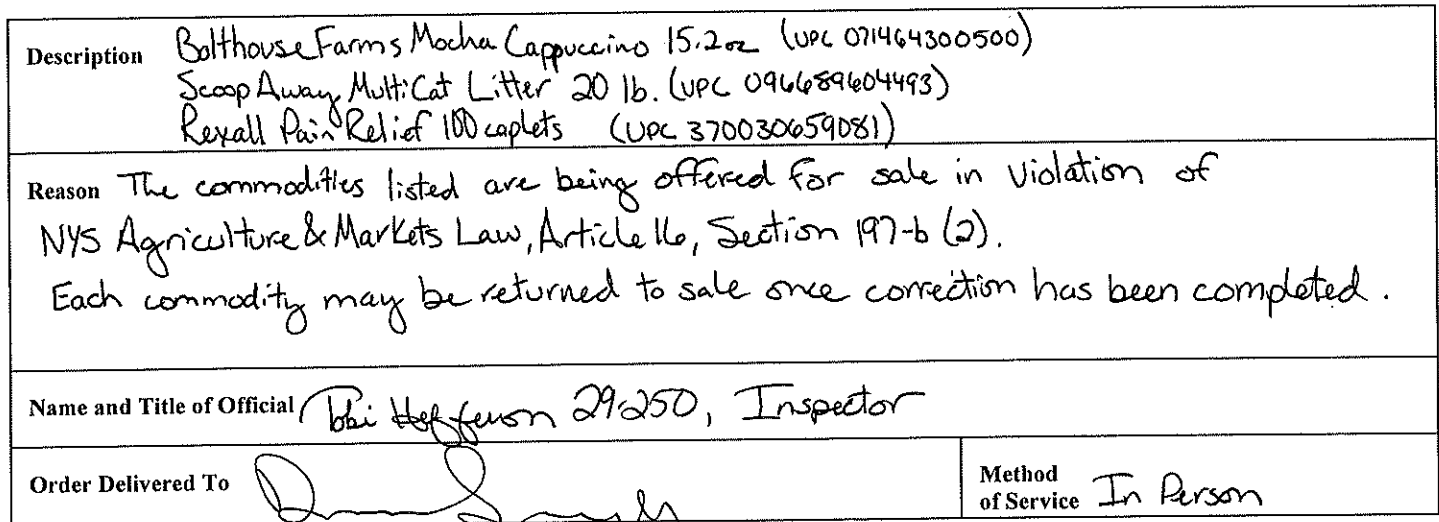 Description Bolthouse Farms Mocha Cappuccino 15.2oz (UPC 071464300500)
Scoop Away MultiCat Litter 20 lb. (UPC 096689604493)
Rexall Pain Relief 100 caplets (UPC 370030659081)
Reason The commodities listed are being offered for sale in violation of
NYS Agriculture & Markets Law, Article 16, Section 197-b (2).
Each commodity may be returned to sale once correction has been completed.
Name and Title of Official Tobi Hefferon 29-250, Inspector
Order Delivered To
Method
of Service In Person